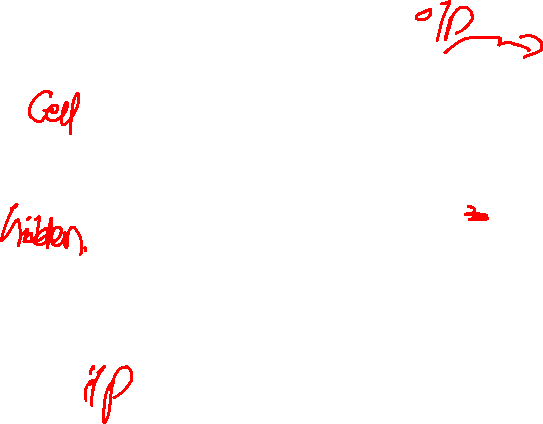 o/p
Cell
hidden.
i/p